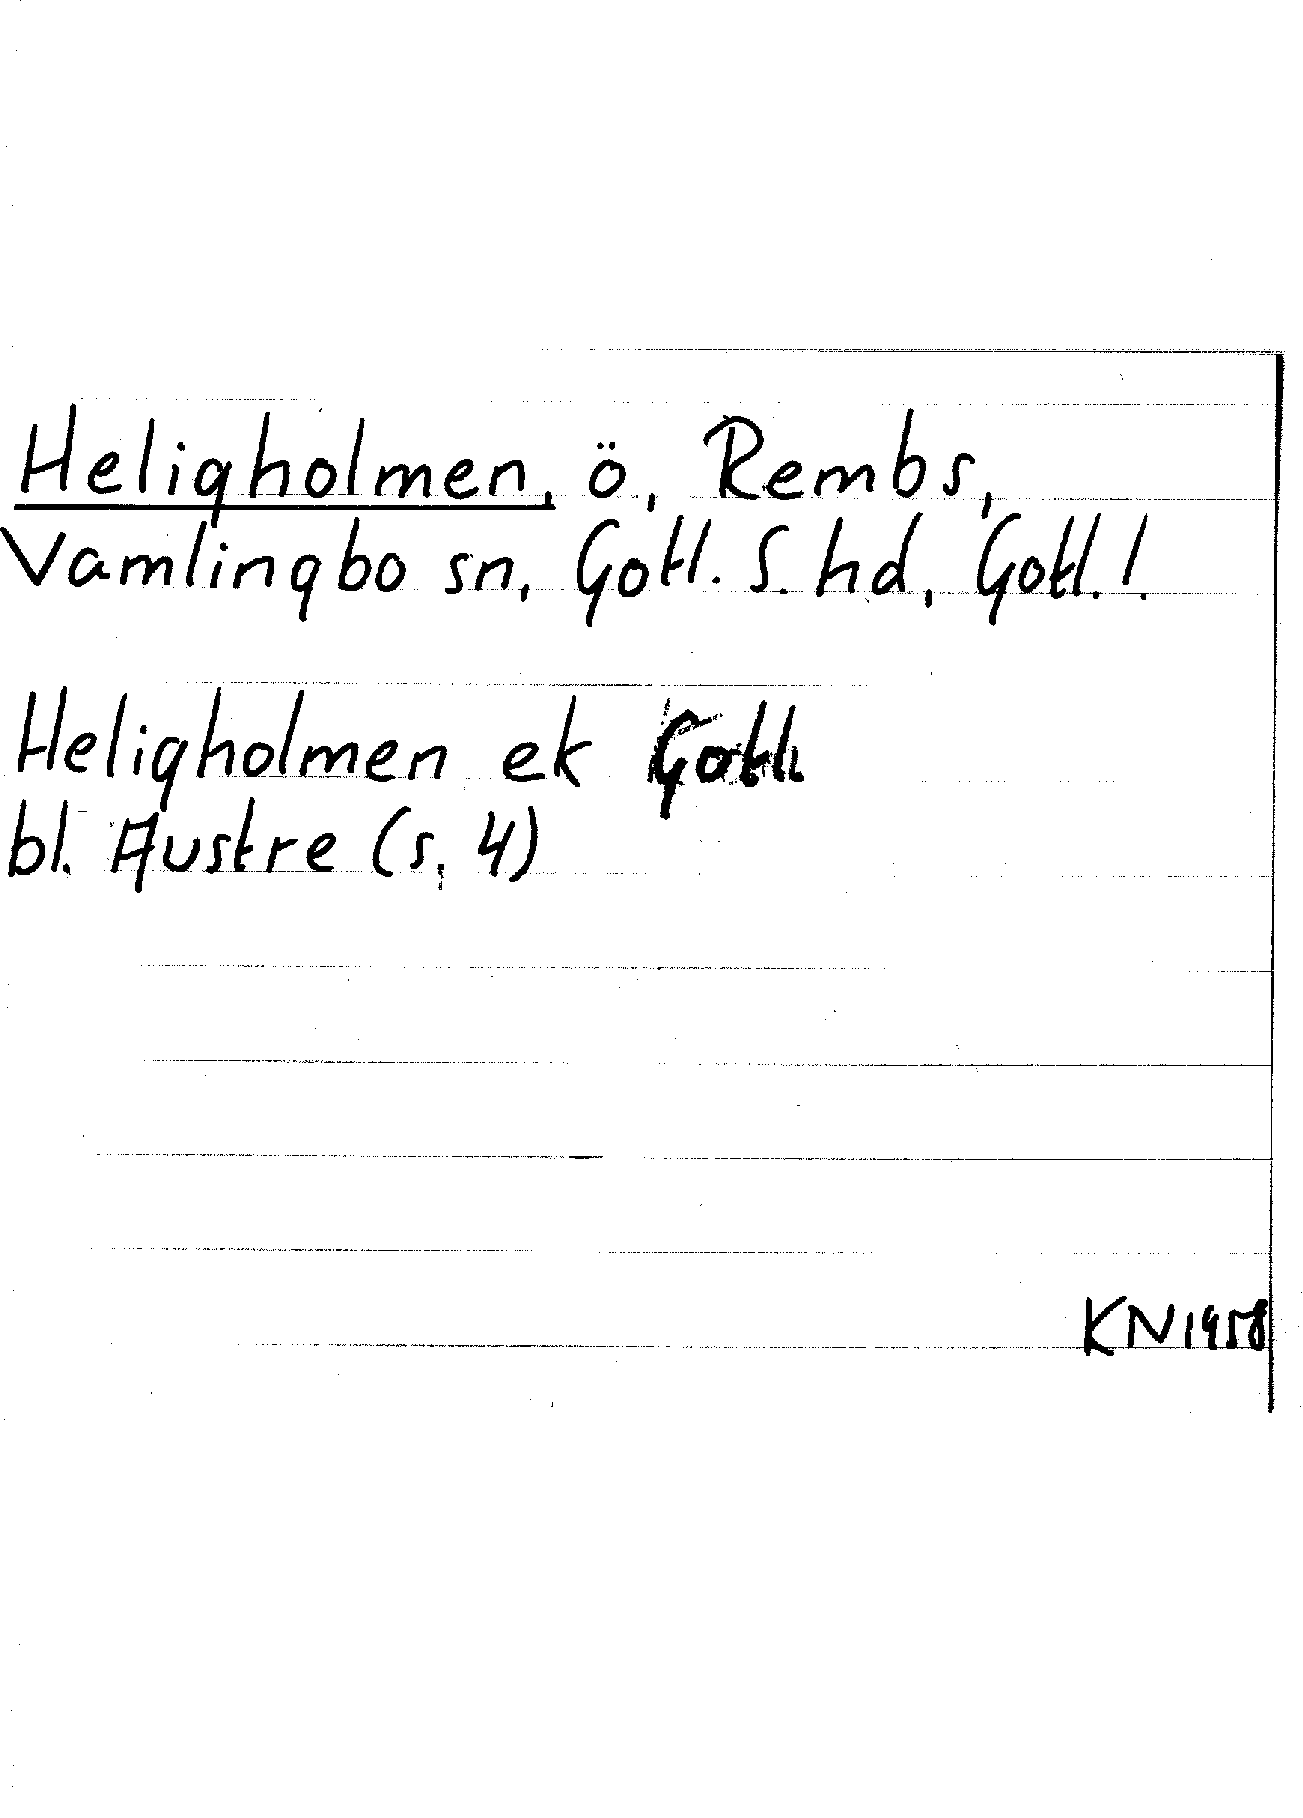 Heligholmen, ö, Rembs,
Vamlingbo sn, Gotl. S. hd, Gotl.!
Heligholmen ek Gotl.
bl. Austre (s. 4)
KN 1958